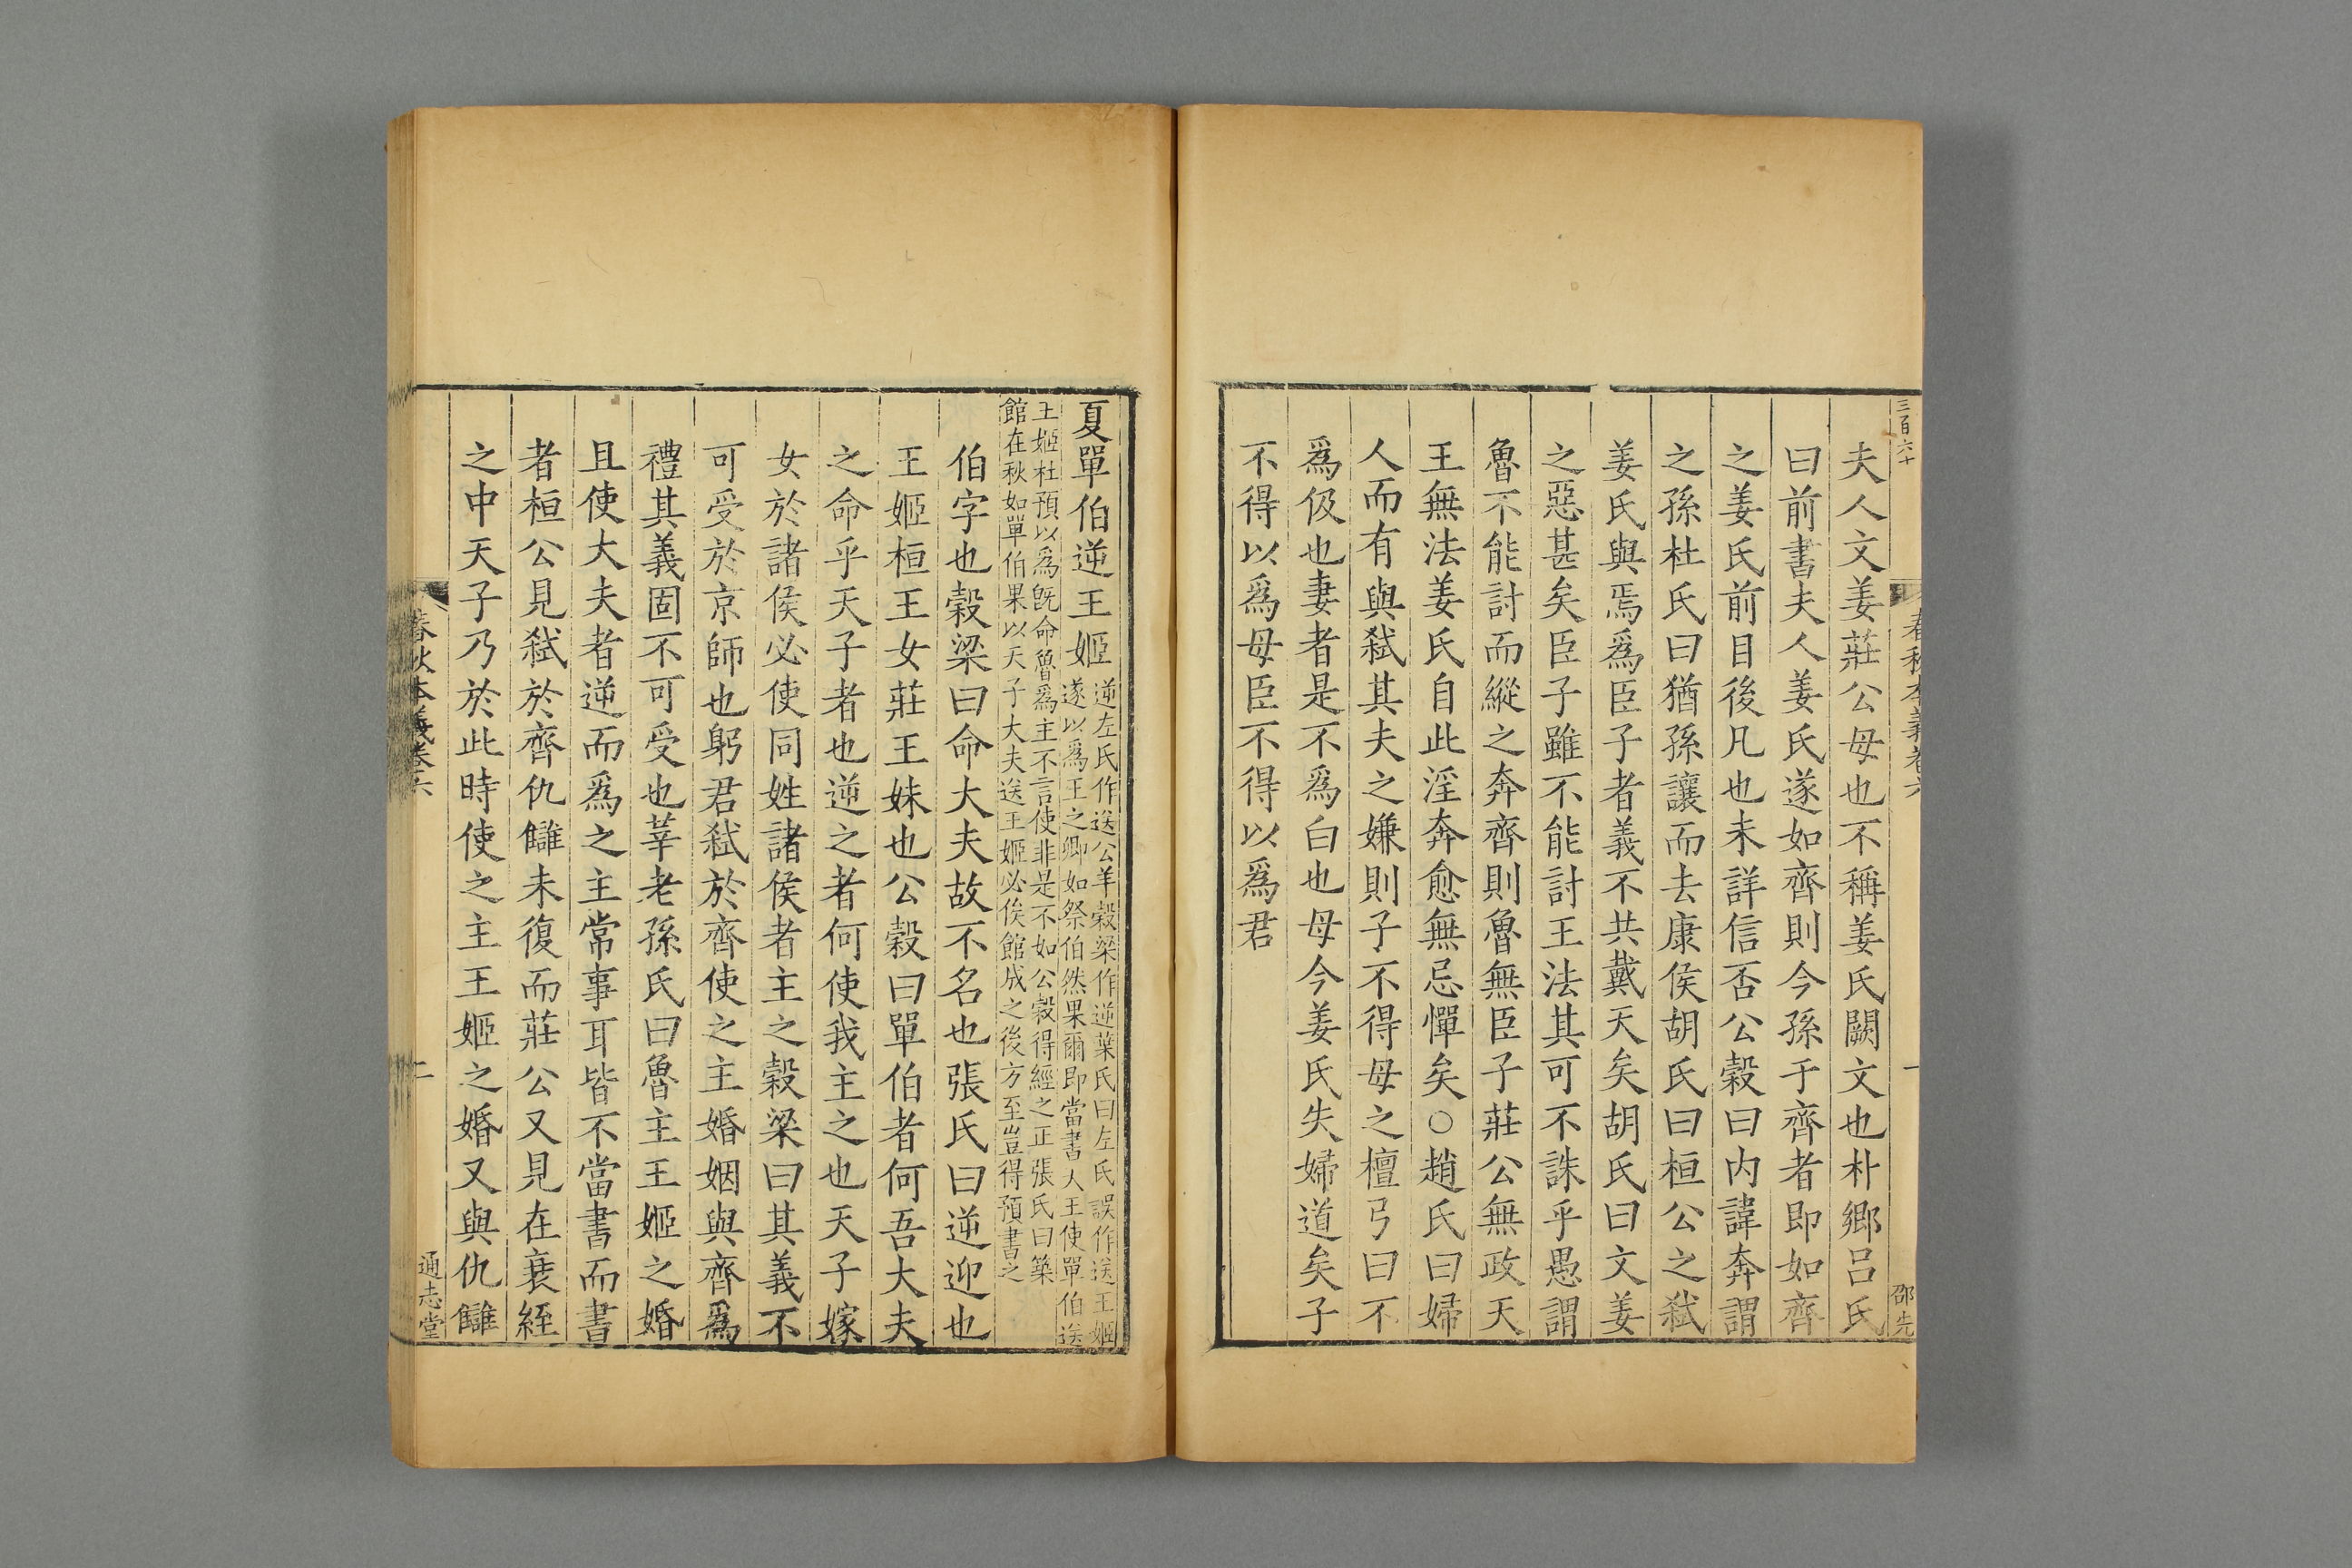 三百六十
春秋本義卷六
一
邵先
夫人文姜莊公母也不稱姜氏闕文也朴鄉呂氏
曰前書夫人姜氏遂如齊則今孫于齊者即如齊
之姜氏前目後凡也未詳信否公穀曰内諱奔謂
之孫杜氏曰猶孫讓而去康侯胡氏曰桓公之弑
姜氏與焉爲臣子者義不共戴天矣胡氏曰文姜
之惡甚矣臣子雖不能討王法其可不誅乎愚謂
魯不能討而縱之奔齊則魯無臣子莊公無政天
王無法姜氏自此淫奔愈無忌憚矣○趙氏曰婦
人而有與弑其夫之嫌則子不得母之檀弓曰不
爲伋也妻者是不爲白也母今姜氏失婦道矣子
不得以爲母臣不得以爲君
夏單伯逆王姬
逆左氏作送公羊穀梁作逆葉氏曰左氏誤作送王姬
遂以爲王之卿如祭伯然果爾即當書人王使單伯送
王姬杜預以爲旣命魯爲主不言使非是不如公穀得經之正張氏曰築
館在秋如單伯果以天子大夫送王姬必俟館成之後方至豈得預書之
伯字也穀梁曰命大夫故不名也張氏曰逆迎也
王姬桓王女莊王妹也公穀曰單伯者何吾大夫
之命乎天子者也逆之者何使我主之也天子嫁
女於諸侯必使同姓諸侯者主之穀梁曰其義不
可受於京師也躬君弑於齊使之主婚姻與齊爲
禮其義固不可受也莘老孫氏曰魯主王姬之婚
且使大夫者逆而爲之主常事耳皆不當書而書
者桓公見弑於齊仇讎未復而莊公又見在衰絰
之中天子乃於此時使之主王姬之婚又與仇讎
春秋本義卷六
二
通志堂